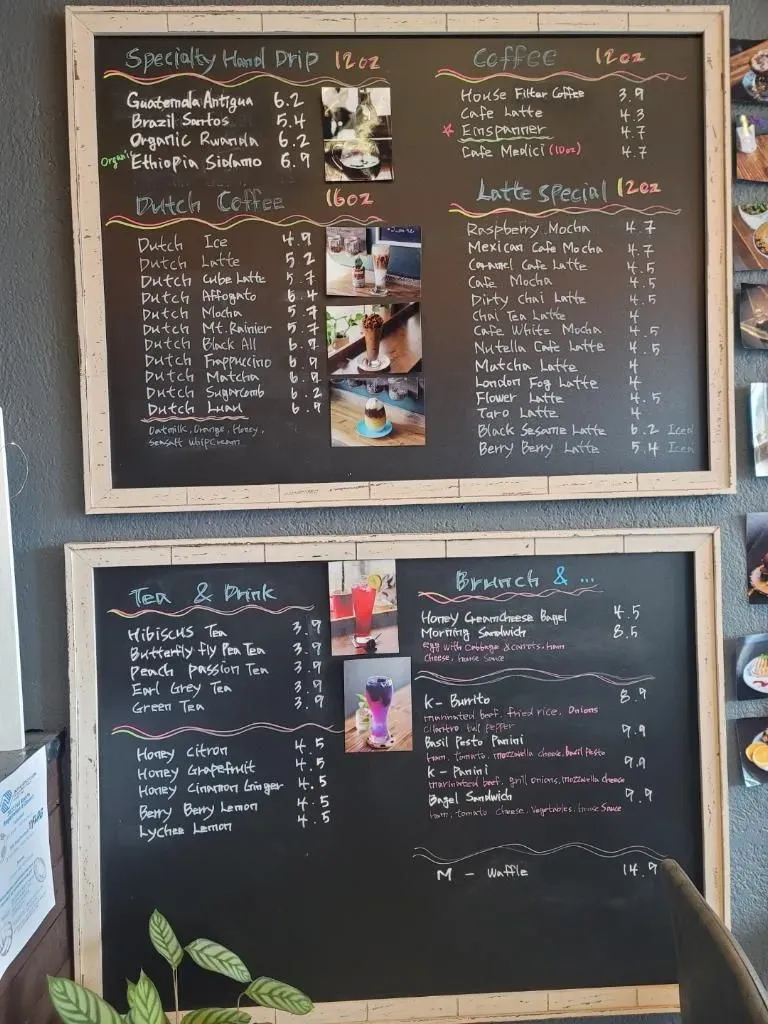 Specialty Hand Drip 12oz
Guatemala Antigua 6.2
Brazil Santos 5.4
Organic Rwanda 6.2
Organic Ethiopia Sidamo 6.9
Dutch Coffee 16oz
Dutch Ice 4.9
Dutch Latte 5.2
Dutch Cube Latte 5.7
Dutch Affogato 6.4
Dutch Mocha 5.7
Dutch Mt.Rainier 5.7
Dutch Black All 6.9
Dutch Frappuccino 6.9
Dutch Matcha 6.9
Dutch Sugarcomb 6.2
Dutch Luau 6.9
Oatmilk, Orange, Honey,
Seasalt WhipCream
Coffee 12oz
House Filter Coffee 3.9
Cafe Latte 4.3
Einspanner 4.7
Cafe Medici (10oz) 4.7
Latte Special 12oz
Raspberry Mocha 4.7
Mexican Cafe Mocha 4.7
Caramel Cafe Latte 4.5
Cafe Mocha 4.5
Dirty Chai Latte 4.5
Chai Tea Latte 4
Cafe White Mocha 4.5
Nutella Cafe Latte 4.5
Matcha Latte 4
London Fog Latte 4
Flower Latte 4.5
Taro Latte 4
Black Sesame Latte 6.2 Iced
Berry Berry Latte 5.4 Iced
Tea & Drink
Hibiscus Tea 3.9
Butterfly fly Pea Tea 3.9
Peach passion Tea 3.9
Earl Grey Tea 3.9
Green Tea 3.9
Honey Citron 4.5
Honey Grapefruit 4.5
Honey Cinnamon Ginger 4.5
Berry Berry Lemon 4.5
Lychee Lemon 4.5
Brunch & ...
Honey Creamcheese Bagel 4.5
Morning Sandwich 8.5
Egg with Cabbage & carrots, Ham
Cheese, House Sauce
K- Burrito 8.9
marinated beef, fried rice, Onions
cilantro bell pepper
Basil Pesto Panini 9.9
Ham, tomato, mozzarella cheese, basil Pesto
K- Panini 9.9
marinated beef, grill onions, mozzarella cheese
Bagel Sandwich 9.9
Ham, tomato cheese, vegetables, House Sauce
M - Waffle 14.9